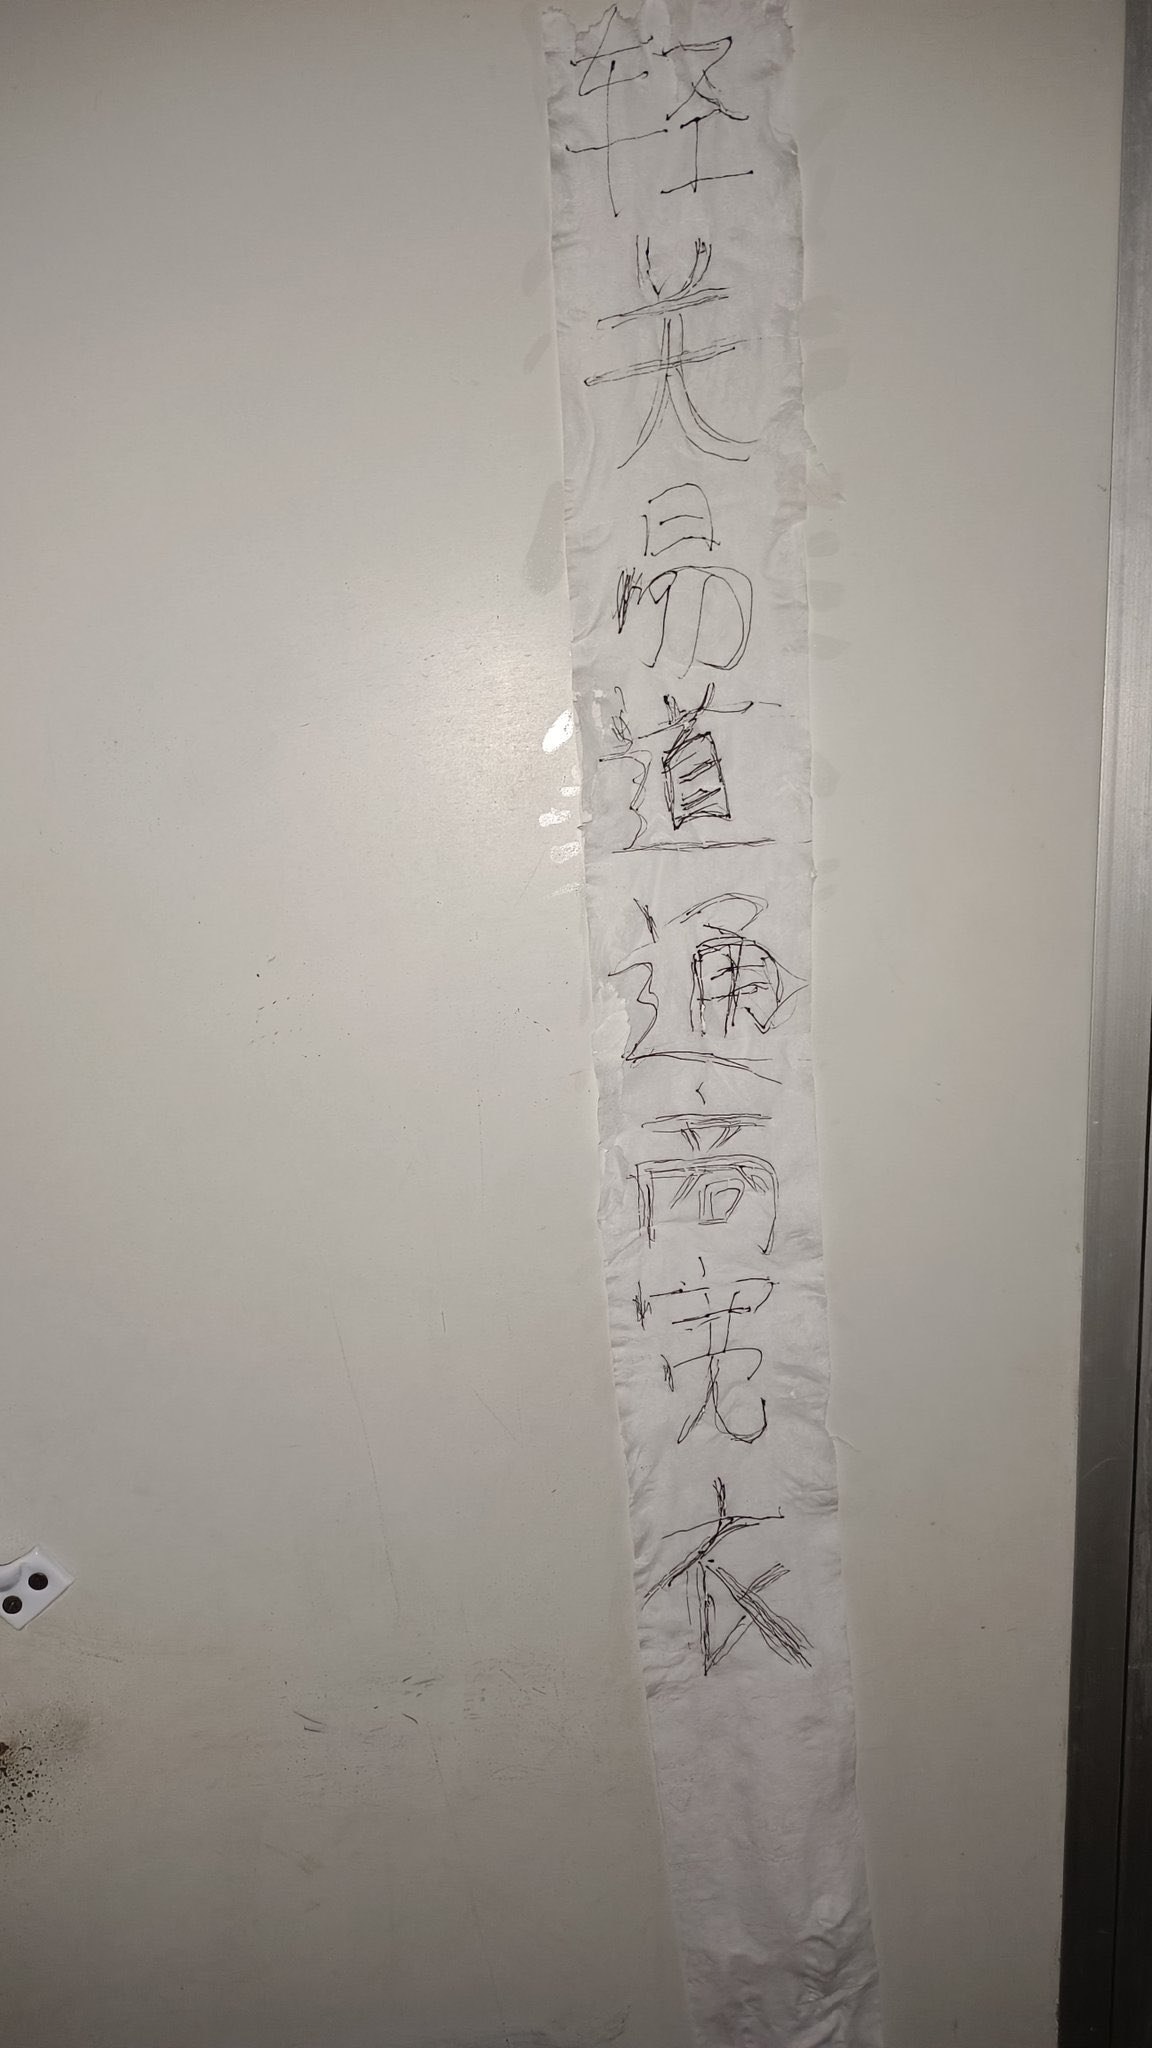 轻关易道通商宽衣